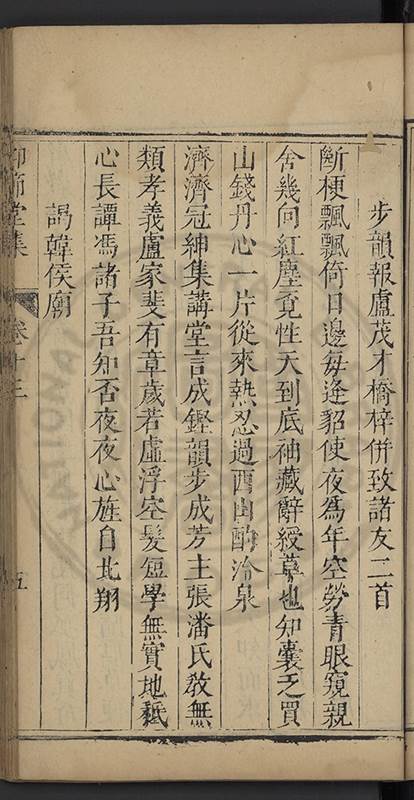 步韻報盧茂才橋梓併致諸友二首
斷梗飄飄倚日邊每逢貂使夜為年空勞青眼窺親
舍幾向紅塵覓性天到底袖藏辭綬草也知囊乏買
山錢丹心一片從來熱忍過酉山酌冷泉
濟濟冠紳集講堂言成鏗韻步成芳主張潘氏敎無
類孝義盧家斐有章歲若虛浮空髮短學無實地秪
心長譚馮諸子吾知否夜夜心旌自北翔
謁韓侯廟
仰節堂集
卷十三
五